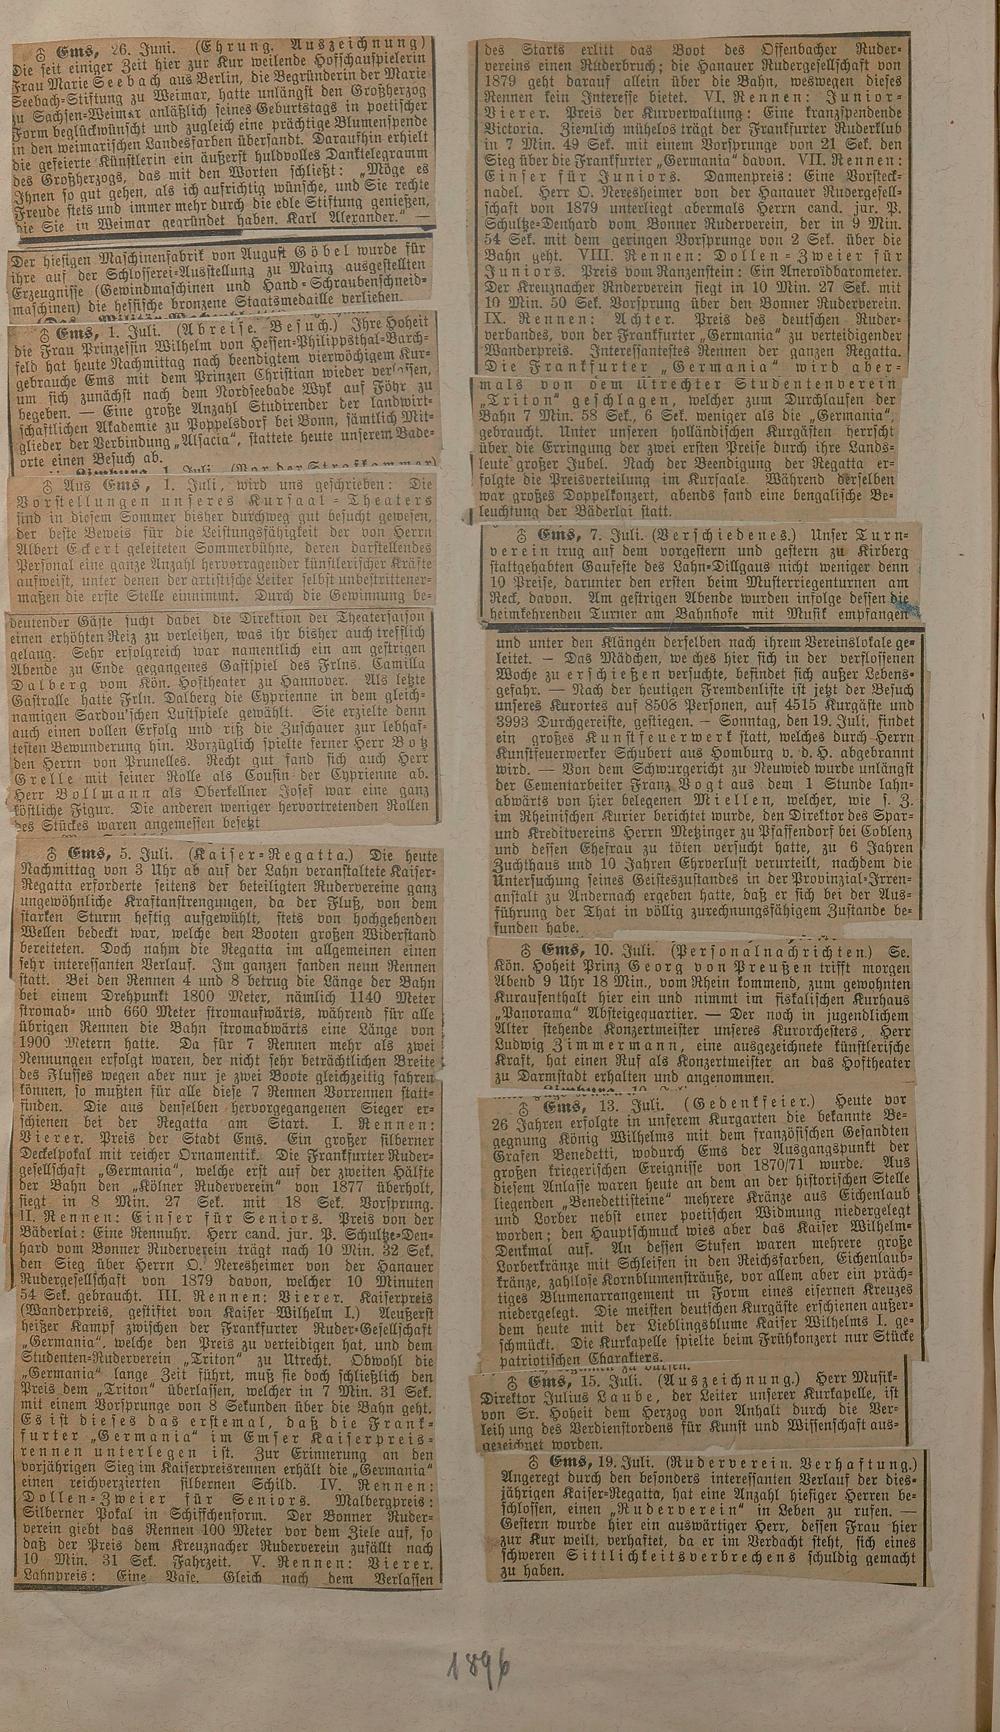 ♁ Ems, 26. Juni. (Ehrung. Auszeichnung)
Die seit einiger Zeit hier zur Kur weilende Hofschauspielerin
Frau Marie Seebach aus Berlin, die Begründerin der Marie
Seebach-Stiftung zu Weimar, hatte unlängst den Großherzog
zu Sachsen-Weimar anläßlich seines Geburtstags in poetischer
Form beglückwünscht und zugleich eine prächtige Blumenspende
in den weimarischen Landesfarben übersandt. Daraufhin erhielt
die gefeierte Künstlerin ein äußerst huldvolles Danktelegramm
des Großherzogs, das mit den Worten schließt: „Möge es
Ihnen so gut gehen, als ich aufrichtig wünsche, und Sie rechte
Freude stets und immer mehr durch die edle Stiftung genießen,
die Sie in Weimar gegründet haben. Karl Alexander.“ —
Der hiesigen Maschinenfabrik von August Göbel wurde für
ihre auf der Schlosserei-Ausstellung zu Mainz ausgestellten
Erzeugnisse (Gewindmaschinen und Hand-Schraubenschneid-
maschinen) die hessische bronzene Staatsmedaille verliehen.
♁ Ems, 1. Juli. (Abreise. Besuch.) Ihre Hoheit
die Frau Prinzessin Wilhelm von Hessen-Philippsthal-Barch-
feld hat heute Nachmittag nach beendigtem vierwöchigem Kur-
gebrauche Ems mit dem Prinzen Christian wieder verlassen,
um sich zunächst nach dem Nordseebade Wyk auf Föhr zu
begeben. — Eine große Anzahl Studirender der landwirt-
schaftlichen Akademie zu Poppelsdorf bei Bonn, sämtlich Mit-
glieder der Verbindung „Alsacia“, stattete heute unserem Bade-
orte einen Besuch ab.
1. Juli. (Vor der Strafkammer)
♁ Aus Ems, 1. Juli, wird uns geschrieben: Die
Vorstellungen unseres Kursaal-Theaters
sind in diesem Sommer bisher durchweg gut besucht gewesen,
der beste Beweis für die Leistungsfähigkeit der von Herrn
Albert Eckert geleiteten Sommerbühne, deren darstellendes
Personal eine ganze Anzahl hervorragender künstlerischer Kräfte
aufweist, unter denen der artistische Leiter selbst unbestrittener-
maßen die erste Stelle einnimmt. Durch die Gewinnung be-
deutender Gäste sucht dabei die Direktion der Theatersaison
einen erhöhten Reiz zu verleihen, was ihr bisher auch trefflich
gelang. Sehr erfolgreich war namentlich ein am gestrigen
Abende zu Ende gegangenes Gastspiel des Frlns. Camilla
Dalberg vom Kön. Hoftheater zu Hannover. Als letzte
Gastrolle hatte Frln. Dalberg die Cyprienne in dem gleich-
namigen Sardou'schen Lustspiele gewählt. Sie erzielte denn
auch einen vollen Erfolg und riß die Zuschauer zur lebhaf-
testen Bewunderung hin. Vorzüglich spielte ferner Herr Botz
den Herrn von Prunelles. Recht gut fand sich auch Herr
Grelle mit seiner Rolle als Cousin der Cyprienne ab.
Herr Bollmann als Oberkellner Josef war eine ganz
köstliche Figur. Die anderen weniger hervortretenden Rollen
des Stückes waren angemessen besetzt
♁ Ems, 5. Juli. (Kaiser-Regatta.) Die heute
Nachmittag von 3 Uhr ab auf der Lahn veranstaltete Kaiser-
Regatta erforderte seitens der beteiligten Rudervereine ganz
ungewöhnliche Kraftanstrengungen, da der Fluß, von dem
starken Sturm heftig aufgewühlt, stets von hochgehenden
Wellen bedeckt war, welche den Booten großen Widerstand
bereiteten. Doch nahm die Regatta im allgemeinen einen
sehr interessanten Verlauf. Im ganzen fanden neun Rennen
statt. Bei den Rennen 4 und 8 betrug die Länge der Bahn
bei einem Drehpunkt 1800 Meter, nämlich 1140 Meter
stromab- und 660 Meter stromaufwärts, während für alle
übrigen Rennen die Bahn stromabwärts eine Länge von
1900 Metern hatte. Da für 7 Rennen mehr als zwei
Nennungen erfolgt waren, der nicht sehr beträchtlichen Breite
des Flusses wegen aber nur je zwei Boote gleichzeitig fahren
können, so mußten für alle diese 7 Rennen Vorrennen statt-
finden. Die aus denselben hervorgegangenen Sieger er-
schienen bei der Regatta am Start. I. Rennen:
Vierer. Preis der Stadt Ems. Ein großer silberner
Deckelpokal mit reicher Ornamentik. Die Frankfurter Ruder-
gesellschaft „Germania“, welche erst auf der zweiten Hälfte
der Bahn den „Kölner Ruderverein“ von 1877 überholt,
siegt in 8 Min. 27 Sek. mit 18 Sek. Vorsprung.
II. Rennen: Einser für Seniors. Preis von der
Bäderlai: Eine Rennuhr. Herr cand. jur. P. Schultze-Den-
hard vom Bonner Ruderverein trägt nach 10 Min. 32 Sek.
den Sieg über Herrn O. Neresheimer von der Hanauer
Rudergesellschaft von 1879 davon, welcher 10 Minuten
54 Sek. gebraucht. III. Rennen: Vierer. Kaiserpreis
(Wanderpreis, gestiftet von Kaiser Wilhelm I.) Aeußerst
heißer Kampf zwischen der Frankfurter Ruder-Gesellschaft
„Germania“, welche den Preis zu verteidigen hat, und dem
Studenten-Ruderverein „Triton“ zu Utrecht. Obwohl die
„Germania“ lange Zeit führt, muß sie doch schließlich den
Preis dem „Triton“ überlassen, welcher in 7 Min. 31 Sek.
mit einem Vorsprunge von 8 Sekunden über die Bahn geht.
Es ist dieses das erstemal, daß die Frank-
furter „Germania“ im Emser Kaiserpreis-
rennen unterlegen ist. Zur Erinnerung an den
vorjährigen Sieg im Kaiserpreisrennen erhält die „Germania“
einen reichverzierten silbernen Schild. IV. Rennen:
Dollen-Zweier für Seniors. Malbergpreis:
Silberner Pokal in Schiffchenform. Der Bonner Ruder-
verein giebt das Rennen 100 Meter vor dem Ziele auf, so
daß der Preis dem Kreuznacher Ruderverein zufällt nach
10 Min. 31 Sek. Fahrzeit. V. Rennen: Vierer.
Lahnpreis: Eine Vase. Gleich nach dem Verlassen
des Starts erlitt das Boot des Offenbacher Ruder-
vereins einen Ruderbruch; die Hanauer Rudergesellschaft von
1879 geht darauf allein über die Bahn, weswegen dieses
Rennen kein Interesse bietet. VI. Rennen: Junior-
Vierer. Preis der Kurverwaltung: Eine kranzspendende
Victoria. Ziemlich mühelos trägt der Frankfurter Ruderklub
in 7 Min. 49 Sek. mit einem Vorsprunge von 21 Sek. den
Sieg über die Frankfurter „Germania“ davon. VII. Rennen:
Einser für Juniors. Damenpreis: Eine Vorsteck-
nadel. Herr O. Neresheimer von der Hanauer Rudergesell-
schaft von 1879 unterliegt abermals Herrn cand. jur. P.
Schultze-Denhard vom Bonner Ruderverein, der in 9 Min.
54 Sek. mit dem geringen Vorsprunge von 2 Sek. über die
Bahn geht. VIII. Rennen: Dollen-Zweier für
Juniors. Preis vom Ranzenstein: Ein Aneroïdbarometer.
Der Kreuznacher Ruderverein siegt in 10 Min. 27 Sek. mit
10 Min. 50 Sek. Vorsprung über den Bonner Ruderverein.
IX. Rennen: Achter. Preis des deutschen Ruder-
verbandes, von der Frankfurter „Germania“ zu verteidigender
Wanderpreis. Interessantestes Rennen der ganzen Regatta.
Die Frankfurter „Germania“ wird aber-
mals von dem Utrechter Studentenverein
„Triton“ geschlagen, welcher zum Durchlaufen der
Bahn 7 Min. 58 Sek., 6 Sek. weniger als die „Germania“,
gebraucht. Unter unseren holländischen Kurgästen herrscht
über die Erringung der zwei ersten Preise durch ihre Lands-
leute großer Jubel. Nach der Beendigung der Regatta er-
folgte die Preisverteilung im Kursaale. Während derselben
war großes Doppelkonzert, abends fand eine bengalische Be-
leuchtung der Bäderlai statt.
♁ Ems, 7. Juli. (Verschiedenes.) Unser Turn-
verein trug auf dem vorgestern und gestern zu Kirberg
stattgehabten Gaufeste des Lahn-Dillgaus nicht weniger denn
10 Preise, darunter den ersten beim Musterriegenturnen am
Reck, davon. Am gestrigen Abende wurden infolge dessen die
heimkehrenden Turner am Bahnhofe mit Musik empfangen
und unter den Klängen derselben nach ihrem Vereinslokale ge-
leitet. — Das Mädchen, welches hier sich in der verflossenen
Woche zu erschießen versuchte, befindet sich außer Lebens-
gefahr. — Nach der heutigen Fremdenliste ist jetzt der Besuch
unseres Kurortes auf 8508 Personen, auf 4515 Kurgäste und
3993 Durchgereiste, gestiegen. — Sonntag, den 19. Juli, findet
ein großes Kunstfeuerwerk statt, welches durch Herrn
Kunstfeuerwerker Schubert aus Homburg v. d. H. abgebrannt
wird. — Von dem Schwurgericht zu Neuwied wurde unlängst
der Cementarbeiter Franz Vogt aus dem 1 Stunde lahn-
abwärts von hier belegenen Miellen, welcher, wie s. Z.
im Rheinischen Kurier berichtet wurde, den Direktor des Spar-
und Kreditvereins Herrn Metzinger zu Pfaffendorf bei Coblenz
und dessen Ehefrau zu töten versucht hatte, zu 6 Jahren
Zuchthaus und 10 Jahren Ehrverlust verurteilt, nachdem die
Untersuchung seines Geisteszustandes in der Provinzial-Irren-
anstalt zu Andernach ergeben hatte, daß er sich bei der Aus-
führung der That in völlig zurechnungsfähigem Zustande be-
funden habe.
♁ Ems, 10. Juli. (Personalnachrichten.) Se.
Kön. Hoheit Prinz Georg von Preußen trifft morgen
Abend 9 Uhr 18 Min., vom Rhein kommend, zum gewohnten
Kuraufenthalt hier ein und nimmt im fiskalischen Kurhaus
„Panorama“ Absteigequartier. — Der noch in jugendlichem
Alter stehende Konzertmeister unseres Kurorchesters, Herr
Ludwig Zimmermann, eine ausgezeichnete künstlerische
Kraft, hat einen Ruf als Konzertmeister an das Hoftheater
zu Darmstadt erhalten und angenommen.
♁ Ems, 13. Juli. (Gedenkfeier.) Heute vor
26 Jahren erfolgte in unserem Kurgarten die bekannte Be-
gegnung König Wilhelms mit dem französischen Gesandten
Grafen Benedetti, wodurch Ems der Ausgangspunkt der
großen kriegerischen Ereignisse von 1870/71 wurde. Aus
diesem Anlasse waren heute an dem an der historischen Stelle
liegenden „Benedettisteine“ mehrere Kränze aus Eichenlaub
und Lorber nebst einer poetischen Widmung niedergelegt
worden; den Hauptschmuck wies aber das Kaiser Wilhelm-
Denkmal auf. An dessen Stufen waren mehrere große
Lorberkränze mit Schleifen in den Reichsfarben, Eichenlaub-
kränze, zahllose Kornblumensträuße, vor allem aber ein präch-
tiges Blumenarrangement in Form eines eisernen Kreuzes
niedergelegt. Die meisten deutschen Kurgäste erschienen außer-
dem heute mit der Lieblingsblume Kaiser Wilhelms I. ge-
schmückt. Die Kurkapelle spielte beim Frühkonzert nur Stücke
patriotischen Charakters.
♁ Ems, 15. Juli. (Auszeichnung.) Herr Musik-
Direktor Julius Laube, der Leiter unserer Kurkapelle, ist
von Sr. Hoheit dem Herzog von Anhalt durch die Ver-
leihung des Verdienstordens für Kunst und Wissenschaft aus-
gezeichnet worden.
♁ Ems, 19. Juli. (Ruderverein. Verhaftung.)
Angeregt durch den besonders interessanten Verlauf der dies-
jährigen Kaiser-Regatta, hat eine Anzahl hiesiger Herren be-
schlossen, einen „Ruderverein“ in Leben zu rufen. —
Gestern wurde hier ein auswärtiger Herr, dessen Frau hier
zur Kur weilt, verhaftet, da er im Verdacht steht, sich eines
schweren Sittlichkeitsverbrechens schuldig gemacht
zu haben.
1896